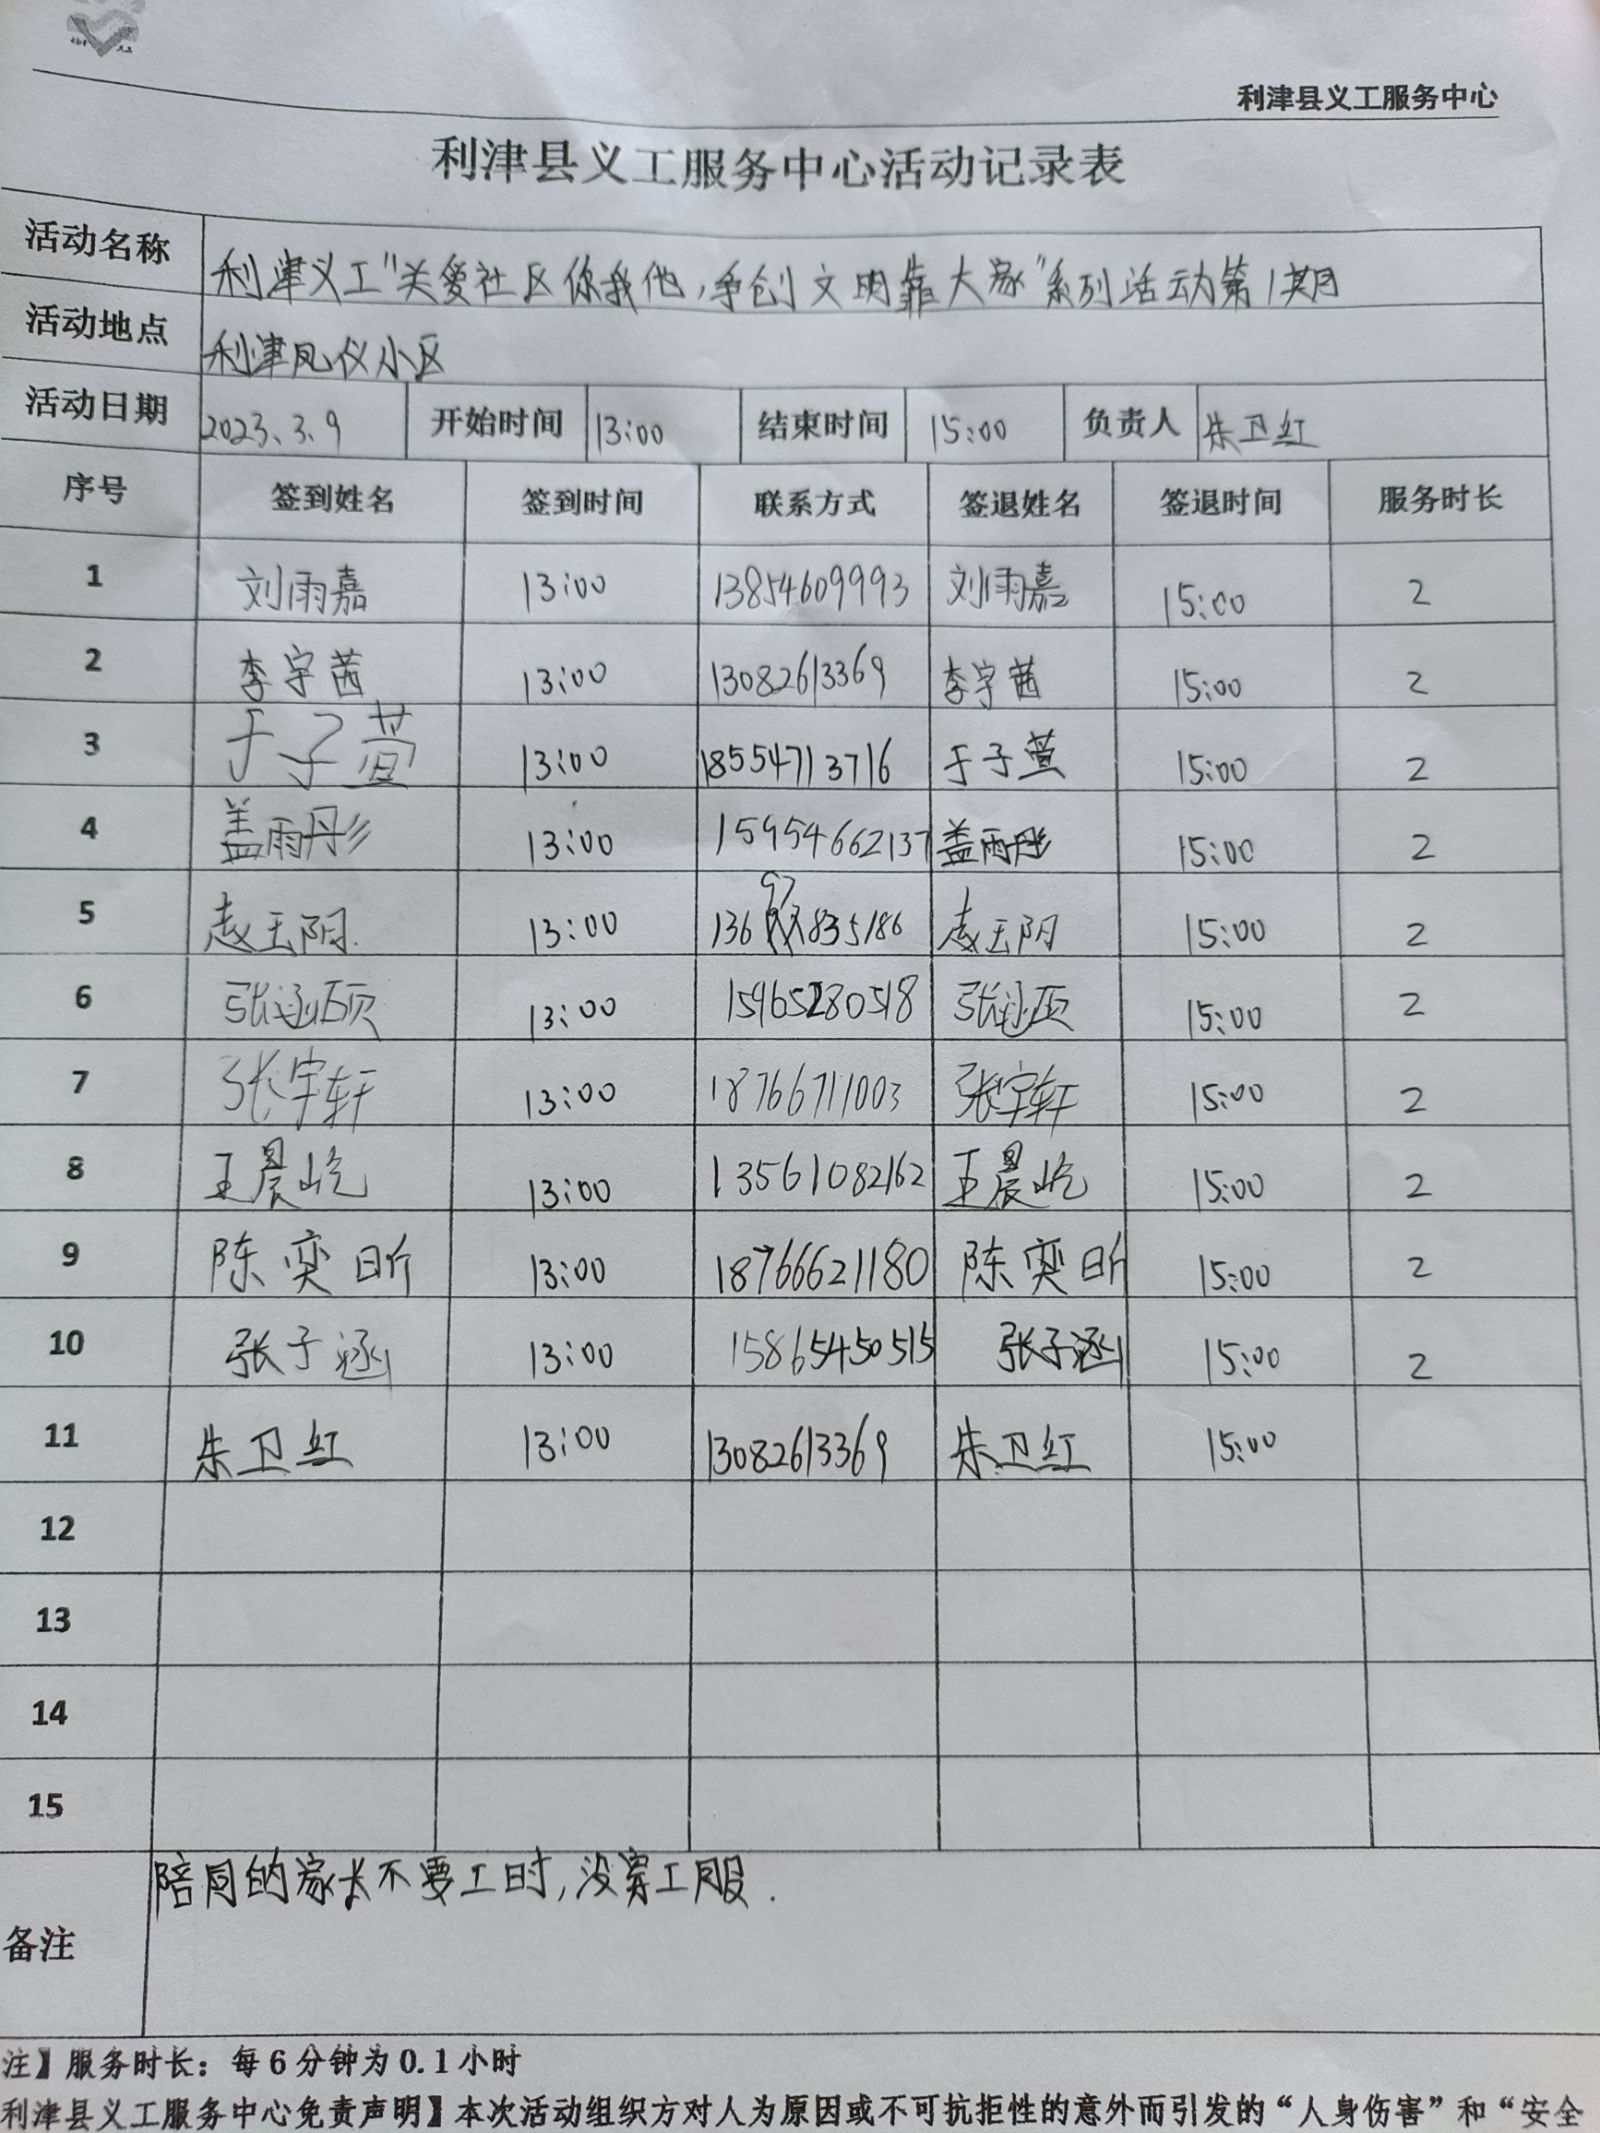 利津县义工服务中心
利津县义工服务中心活动记录表
活动名称 利津义工"关爱社区你我他,争创文明靠大家"系列活动第1期
活动地点 利津凤仪小区
活动日期 2023.3.9 开始时间 13:00 结束时间 15:00 负责人 朱卫红
序号 签到姓名 签到时间 联系方式 签退姓名 签退时间 服务时长
1 刘雨嘉 13:00 13854609993 刘雨嘉 15:00 2
2 李宇茜 13:00 13082613369 李宇茜 15:00 2
3 于子萱 13:00 18554713716 于子萱 15:00 2
4 盖雨彤 13:00 15954662137 盖雨彤 15:00 2
5 13:00 15:00 2
6 张涵硕 13:00 15965280518 张涵硕 15:00 2
7 张宇轩 13:00 18766711003 张宇轩 15:00 2
8 王晨屹 13:00 13561082162 王晨屹 15:00 2
9 陈奕昕 13:00 18766621180 陈奕昕 15:00 2
10 张子涵 13:00 15865450515 张子涵 15:00 2
11 朱卫红 13:00 13082613369 朱卫红 15:00
12
13
14
15
备注 陪同的家长不要工时,没穿工服.
注】服务时长：每6分钟为0.1小时
利津县义工服务中心免责声明】本次活动组织方对人为原因或不可抗拒性的意外而引发的“人身伤害”和“安全